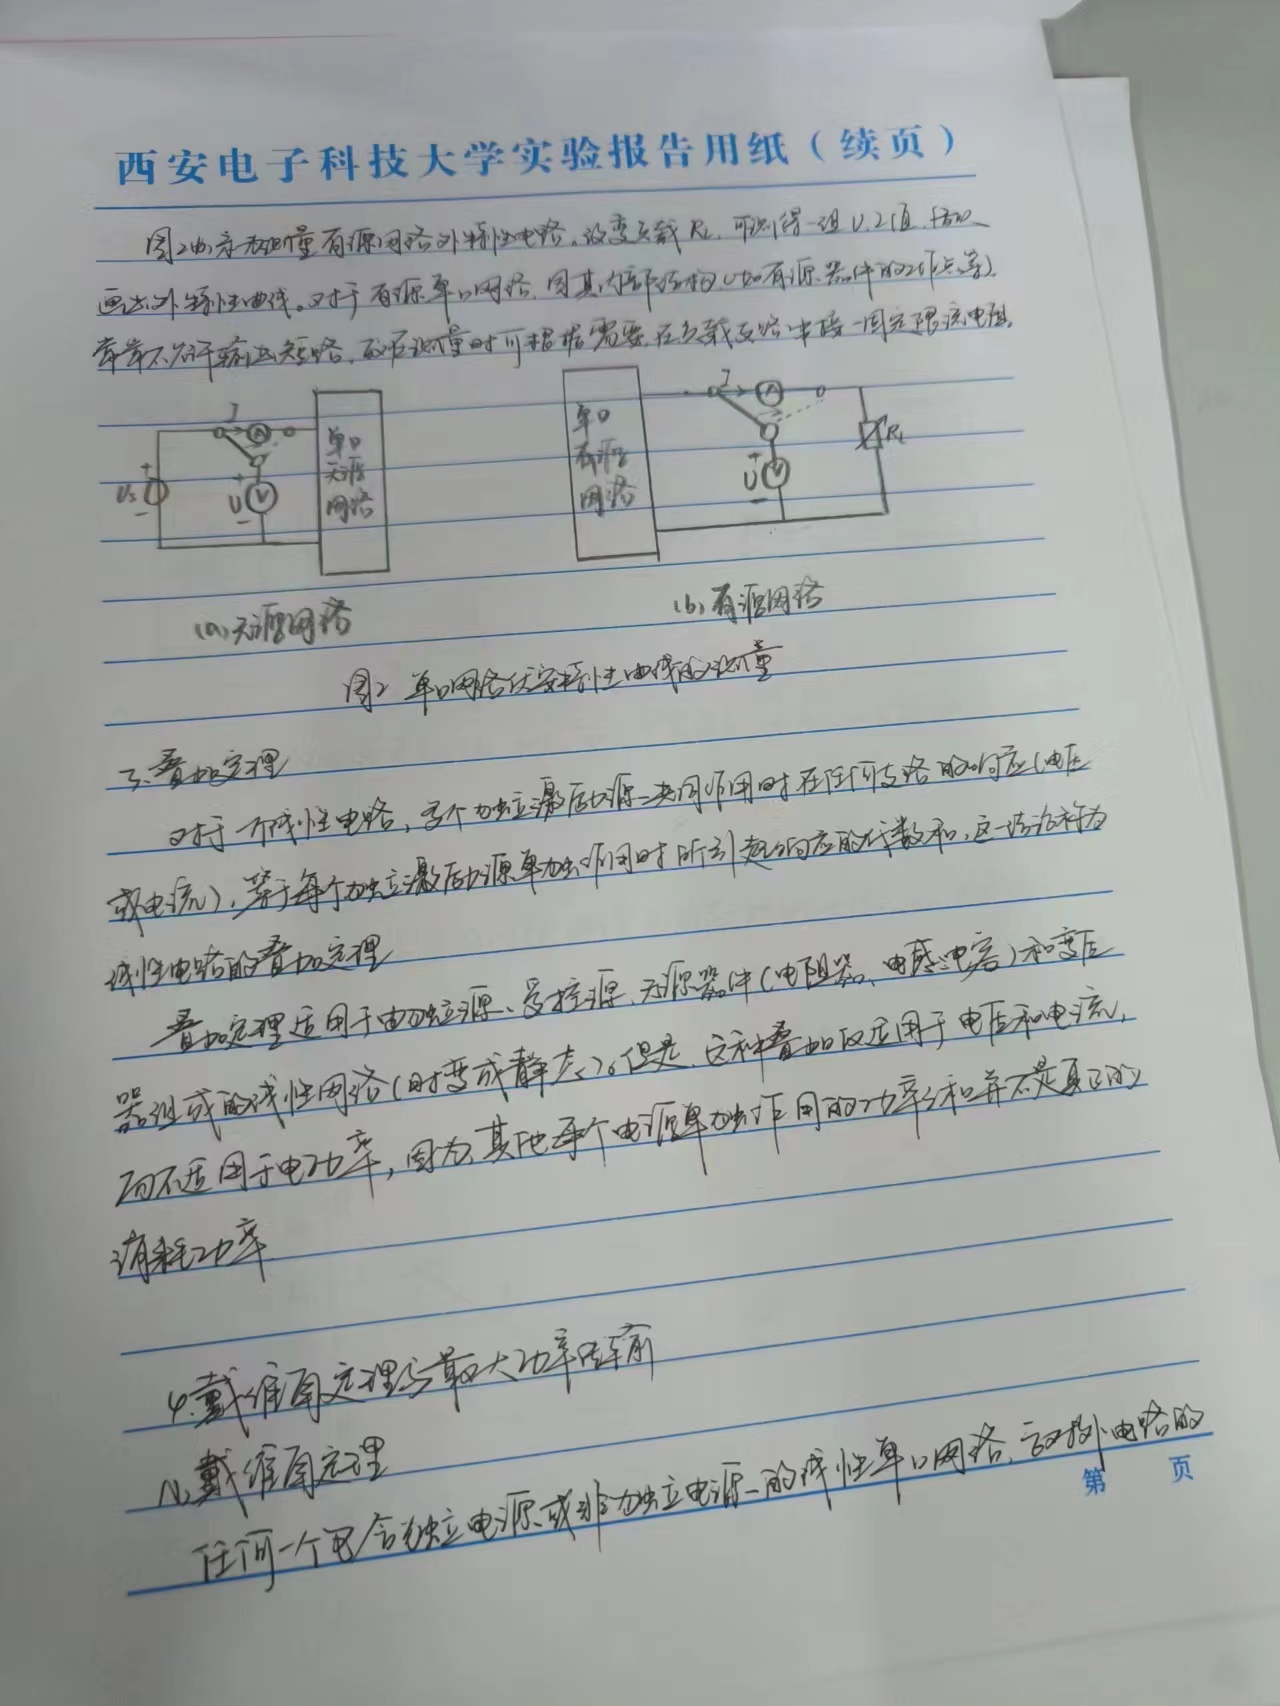 西安电子科技大学实验报告用纸（续页）
图2(b)示为测量有源网络外特性电路。改变负载 RL, 可测得一组U、I值,
画出外特性曲线。对于有源单口网络, 因其内部结构(如有源器件的工作点等)
常常不允许输出短路, 故在测量时可根据需要, 在负载支路串接一固定限流电阻。
I
A
Us
+
-
+
U
V
-
单口
无源
网络
单口
有源
网络
I
A
+
U
V
-
RL
(a)无源网络
(b)有源网络
图2 单口网络伏安特性曲线的测量
3、叠加定理
对于一个线性电路, 多个独立激励源共同作用时在任何支路的响应(电压
或电流), 等于每个独立激励源单独作用时所引起响应的代数和, 这一结论称为
线性电路的叠加定理
叠加定理适用于由独立源、受控源、无源器件(电阻器、电感、电容)和变压
器组成的线性网络(时变或静态)。但是, 这种叠加仅适用于电压和电流,
而不适用于电功率, 因为, 其他每个电源单独作用的功率之和并不是真正的
消耗功率
4、戴维南定理与最大功率传输
1、戴维南定理
任何一个包含独立电源或非独立电源的线性单口网络, 就外电路的
第 页